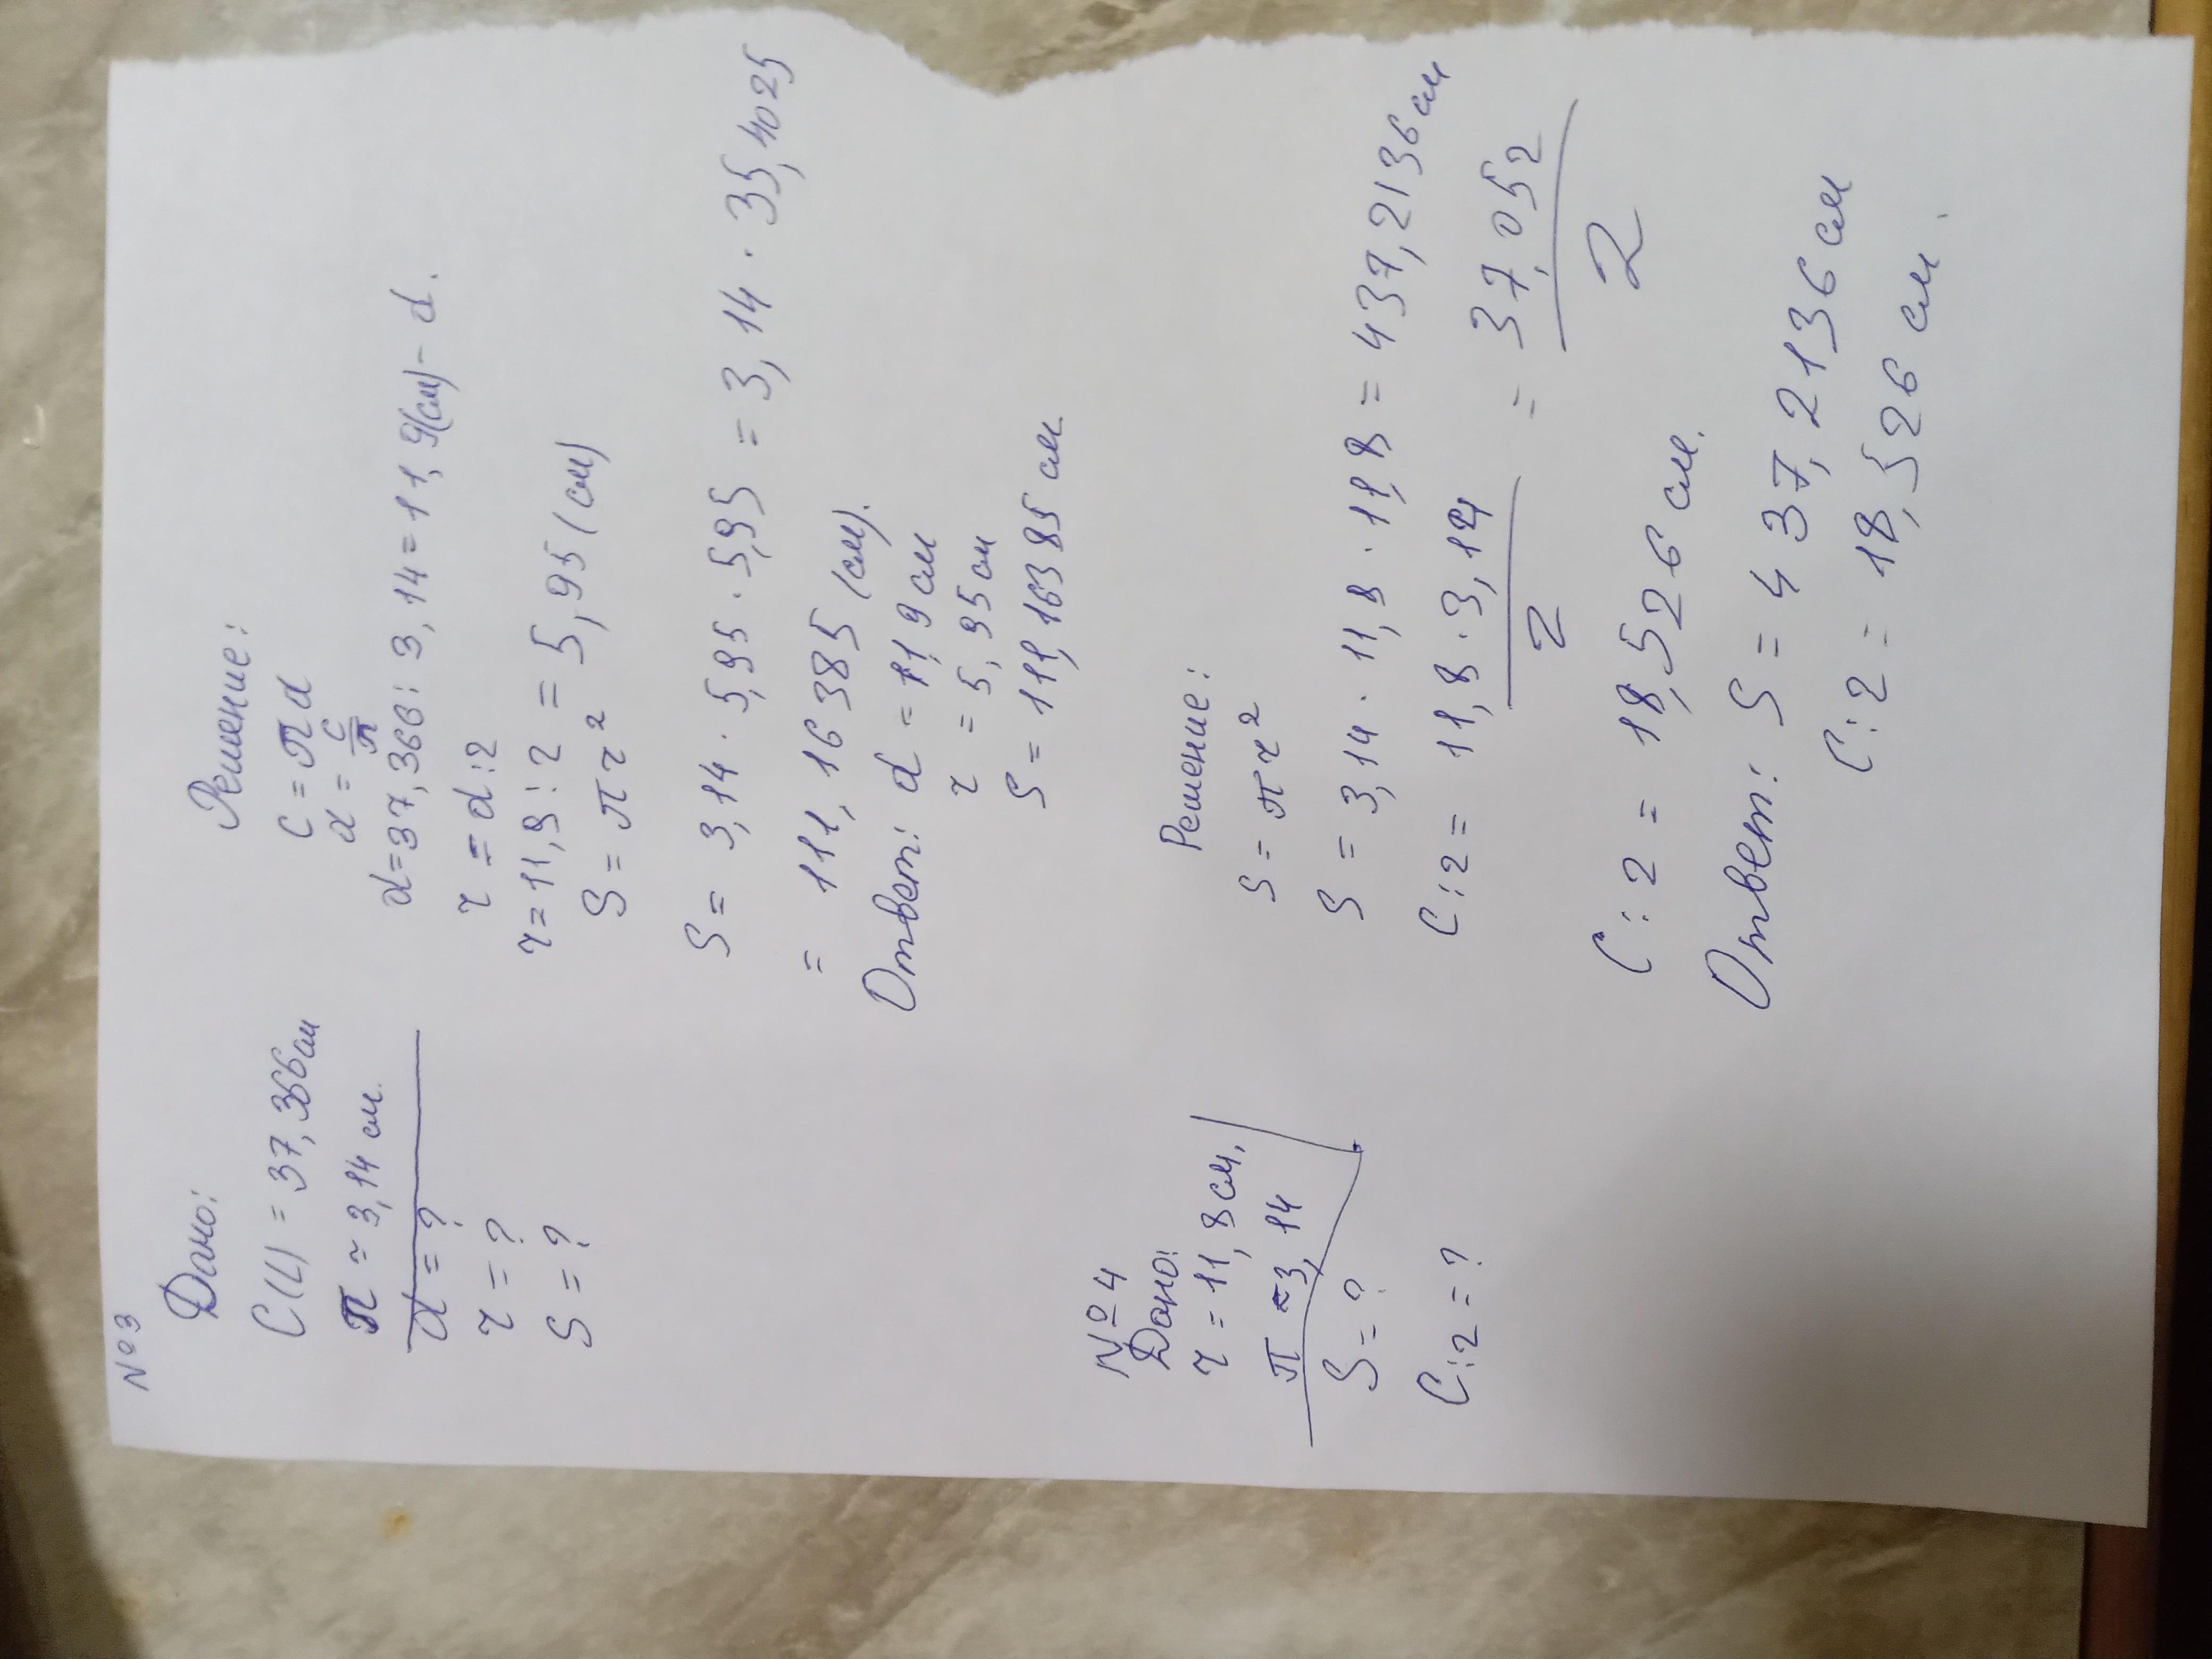 №3
Дано:
C(L) = 37,366см
π ≈ 3,14 см.
d = ?
r = ?
S = ?
Решение:
C = πd
d = C/π
d=37,366:3,14=11,9(см)- d.
r = d:2
r=11,9:2=5,95(см)
S = πr²
S= 3,14·5,95·5,95 = 3,14·35,4025
= 111,16385 (см).
Ответ: d = 11,9см
r = 5,95см
S=111,16385 см
№4
Дано:
r = 11,8см.
π ≈3,14
S=?
C:2=?
Решение:
S = πr²
S = 3,14·11,8·11,8 = 437,2136см
C:2= 11,8·3,14/2 = 37,052/2
C:2 = 18,526 см.
Ответ: S = 437,2136 см
C:2 = 18,526 см.